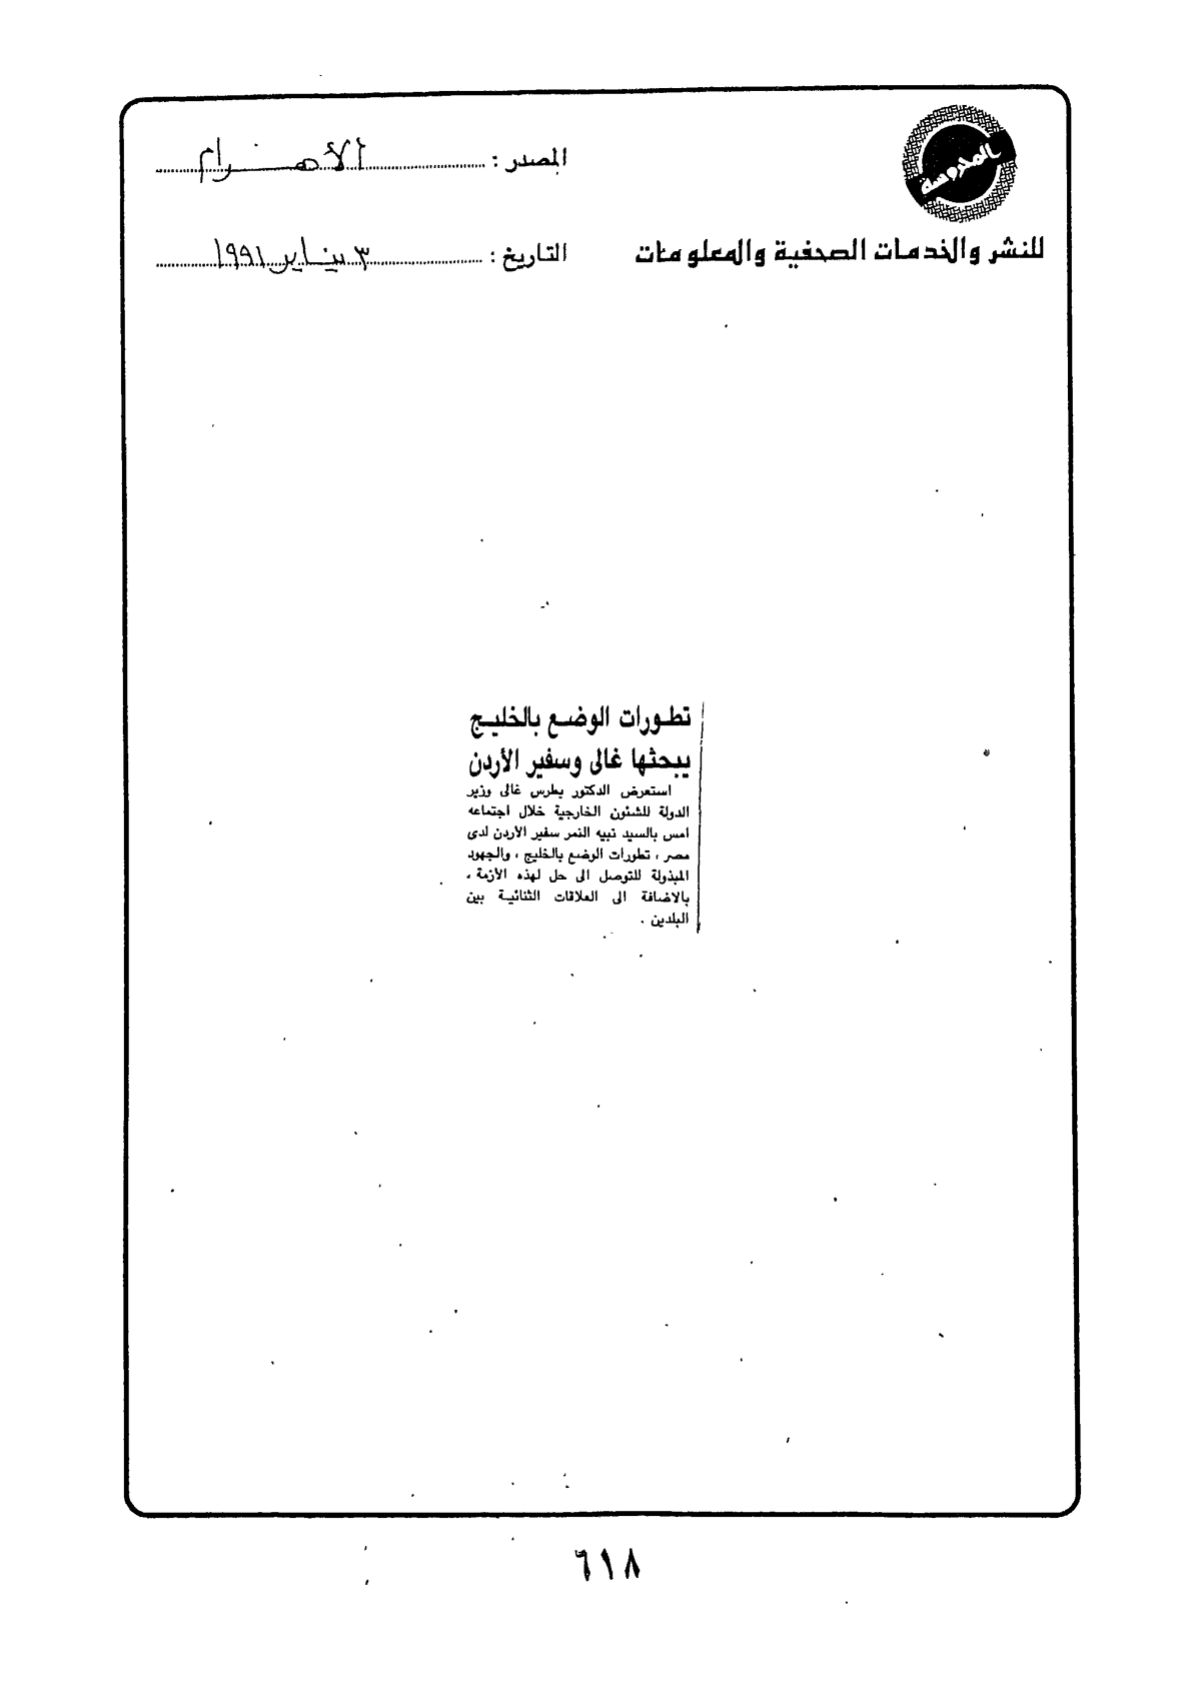 المحروسة
للنشر والخدمات الصحفية والمعلومات
المصدر : الأهرام
التاريخ : ٣ يناير ١٩٩١
تطورات الوضع بالخليج
يبحثها غالى وسفير الأردن
استعرض الدكتور بطرس غالى وزير
الدولة للشئون الخارجية خلال اجتماعه
امس بالسيد نبيه النمر سفير الأردن لدى
مصر ، تطورات الوضع بالخليج ، والجهود
المبذولة للتوصل الى حل لهذه الأزمة ،
بالاضافة الى العلاقات الثنائية بين
البلدين .
٦١٨